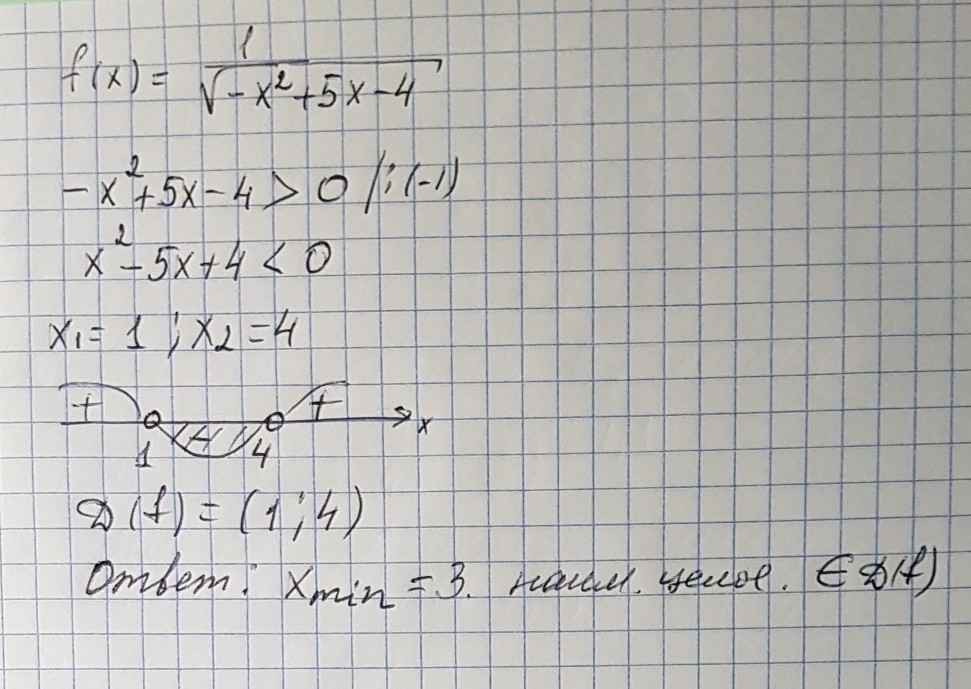 f(x) = 1/√(-x²+5x-4)
-x²+5x-4 > 0 /:(-1)
x²-5x+4 < 0
x₁ = 1 ; x₂ = 4
+ - + x
1 4
D(f) = (1;4)
Ответ: x min = 3. наим. целое. ∈ D(f)